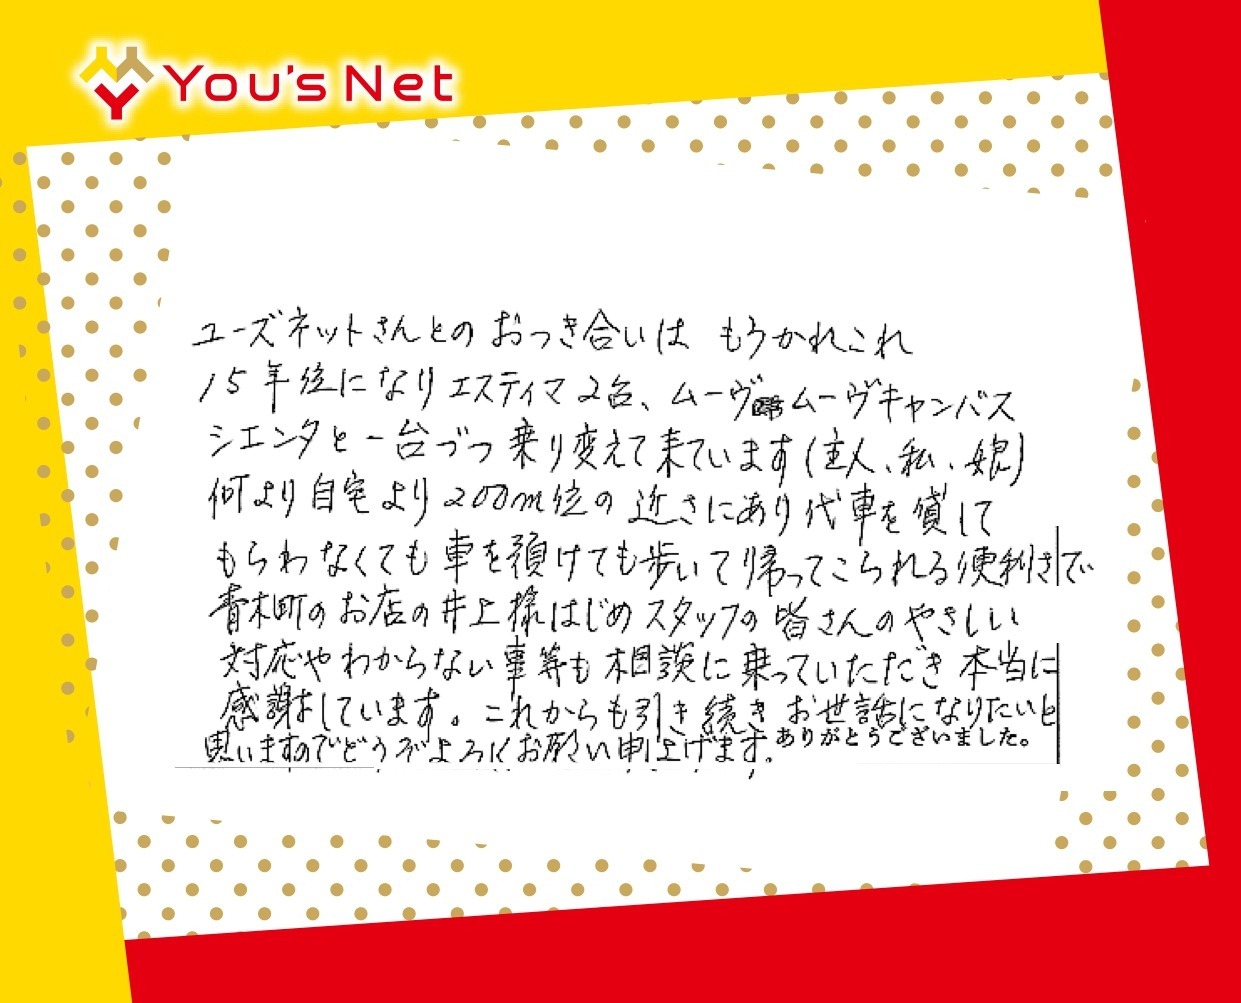 You's Net
ユーズネットさんとのおつき合いは もうかれこれ
15年位になりエスティマ2台、ムーヴ ムーヴキャンバス
シエンタと一台づつ乗り変えて来ています(主人、私、娘)
何より自宅より200m位の近さにあり代車を貸して
もらわなくても車を預けても歩いて帰ってこられる便利さで
青木町のお店の井上様はじめスタッフの皆さんのやさしい
対応やわからない事等も相談に乗っていただき本当に
感謝しています。これからも引き続きお世話になりたいと
思いますのでどうぞよろしくお願い申し上げます。ありがとうございました。